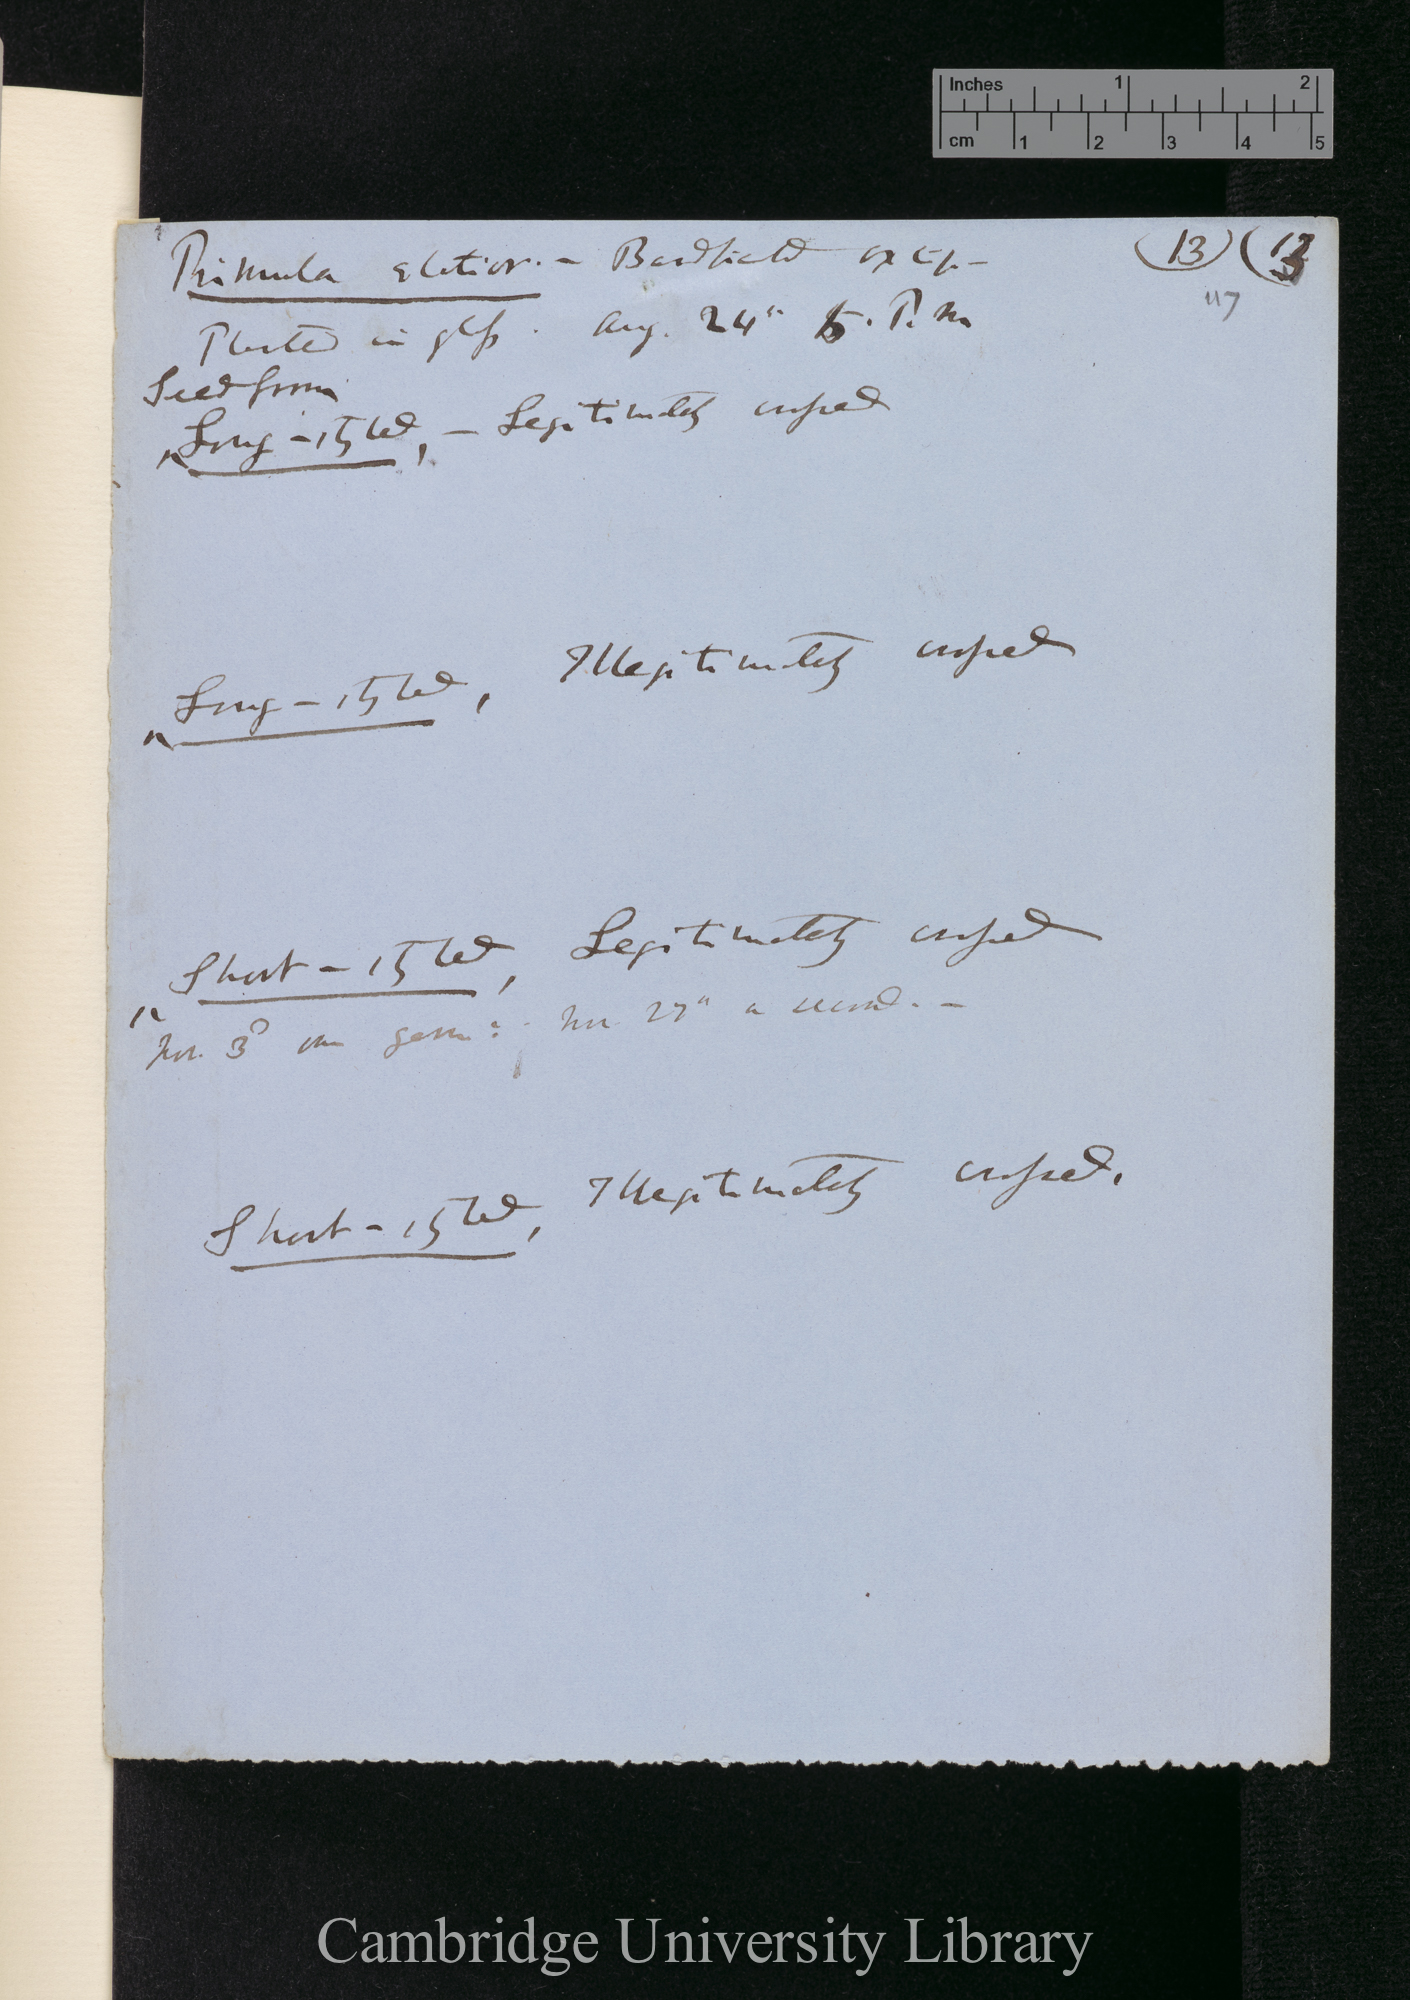 Inches 1 2
cm 1 2 3 4 5
Primula elatior. - Bardfield oxlip - (13) (13
117
Planted in glass. Aug. 24th 5. P.m
Seed from
Long-styled, - Legitimately crossed
Long-styled, Illegitimately crossed
Short-styled, Legitimately crossed
Nov. 3d one germ: Nov 27th a second. -
Short-styled, Illegitimately crossed.
Cambridge University Library